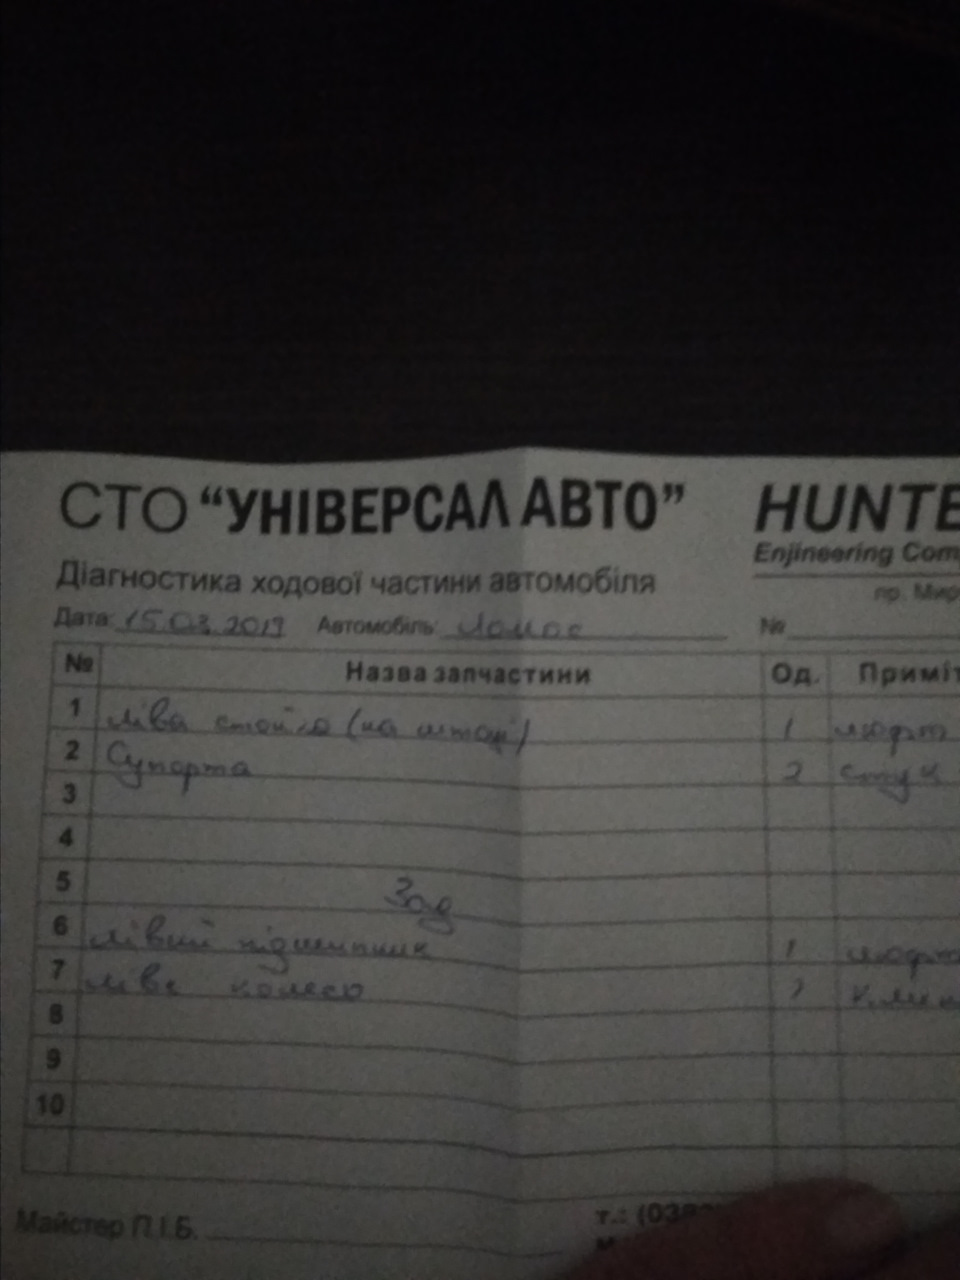 СТО “УНІВЕРСАЛ АВТО” HUNTE
Enjineering Com
Діагностика ходової частини автомобіля
пр. Мир
Дата: 15.03.2019 Автомобіль: Ланос №
№ Назва запчастини Од. Приміт
1 ліва стойка (на штоці) 1 люфт
2 Супорта 2 стук
3
4
5 Зад
6 лівий підшипник 1 люфт
7 ліве колесо
8
9
10
Майстер П.І.Б. т.: (038